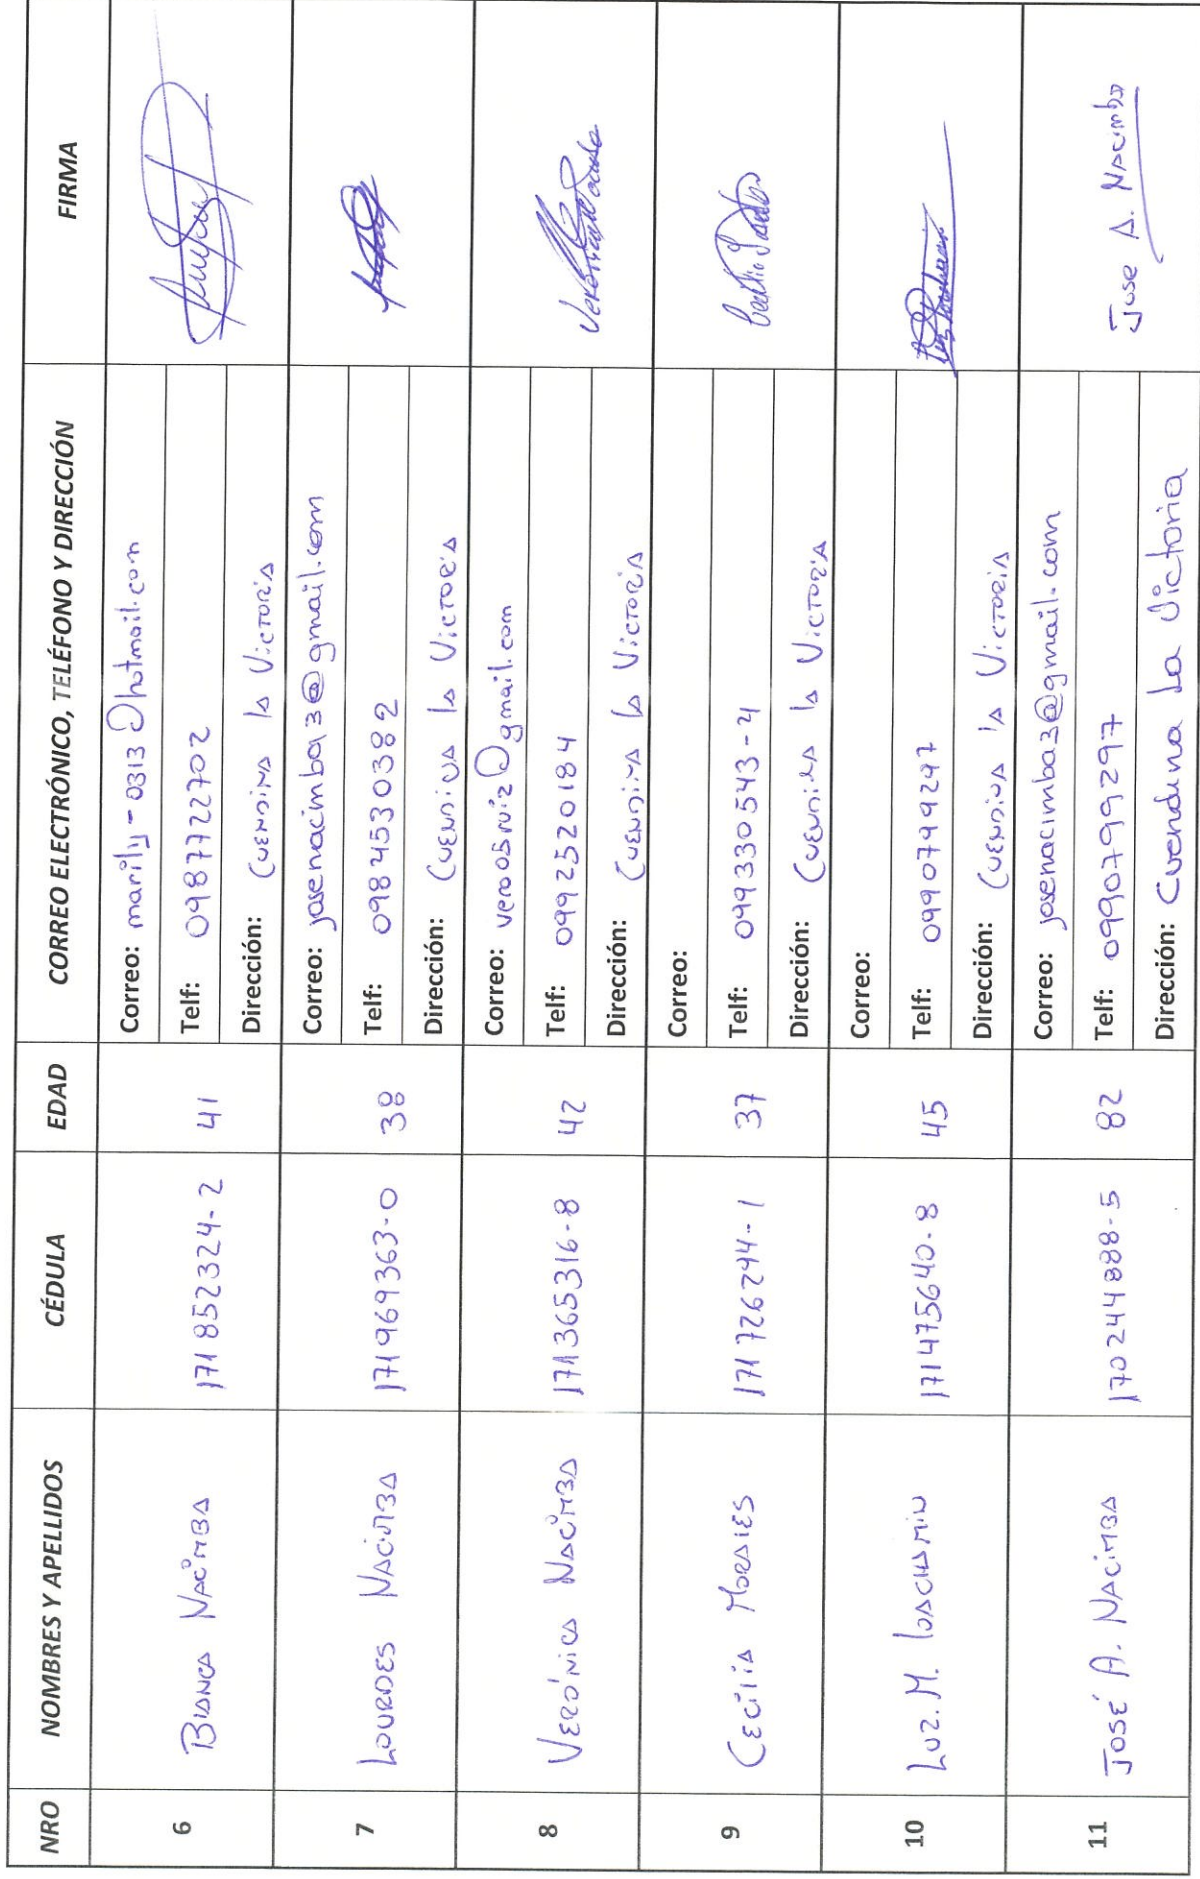 NRO NOMBRES Y APELLIDOS CÉDULA EDAD CORREO ELECTRÓNICO, TELÉFONO Y DIRECCIÓN FIRMA
6 BIANCA NACIMBA 171852324-2 41
Correo: marily-0313@hotmail.com
Telf: 0987722702
Dirección: CUENDINA la VICTORIA
7 LOURDES NACIMBA 171969363-0 38
Correo: josenacimba3@gmail.com
Telf: 0984530382
Dirección: CUENDINA la VICTORIA
8 VERÓNICA NACIMBA 171365316-8 42
Correo: vero05ruiz@gmail.com
Telf: 0992520184
Dirección: CUENDINA la VICTORIA
9 CECILIA MORALES 171726244-1 37
Correo:
Telf: 099330543-4
Dirección: CUENDINA la VICTORIA
10 LUZ. M. 171475640-8 45
Correo:
Telf: 0990799297
Dirección: CUENDINA la VICTORIA
11 JOSÉ A. NACIMBA 170244888-5 82 Jose A. Nacimba
Correo: josenacimba3@gmail.com
Telf: 0990799297
Dirección: Cuendina La Victoria